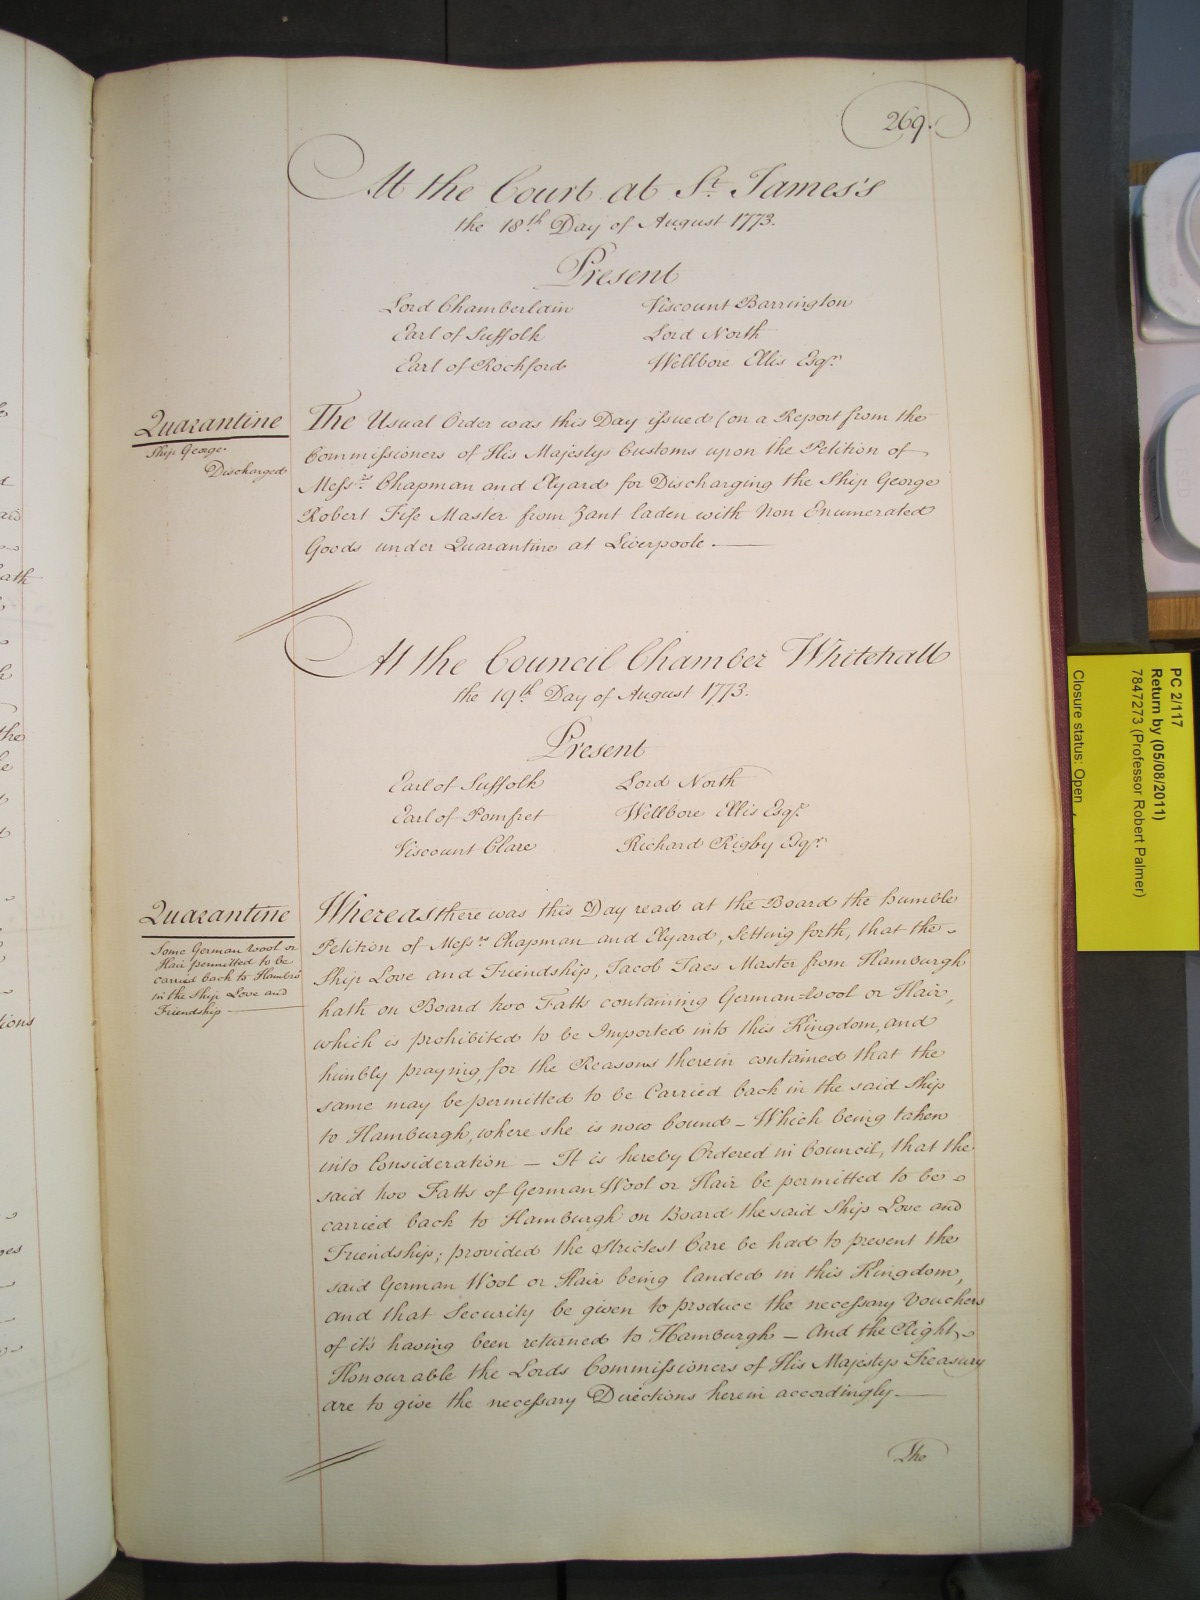 269.
At the Court at St. James's
the 18th Day of August 1773.
Present
Lord Chamberlain Viscount Barrington
Earl of Suffolk Lord North
Earl of Rochford Wellbore Ellis Esqr.
Quarantine
Ship George
Discharged
The Usual Order was this Day issued (on a Report from the
Commissioners of His Majestys Customs upon the Petition of
Messrs. Chapman and Elyard for Discharging the Ship George
Robert Fife Master from Zant laden with Non Enumerated
Goods under Quarantine at Liverpoole.
At the Council Chamber Whitehall
the 19th Day of August 1773.
Present
Earl of Suffolk Lord North
Earl of Pomfret Wellbore Ellis Esqr.
Viscount Clare Richard Rigby Esqr.
Quarantine
Some German wool or
Hair permitted to be
carried back to Hambro'
in the Ship Love and
Friendship
Whereas there was this Day read at the Board the humble
Petition of Messrs. Chapman and Elyard, Setting forth, that the
Ship Love and Friendship, Jacob Jaes Master from Hamburgh
hath on Board two Fatts containing German-Wool or Hair,
which is prohibited to be Imported into this Kingdom, and
humbly praying, for the Reasons therein contained that the
same may be permitted to be Carried back in the said Ship
to Hamburgh, where she is now bound - Which being taken
into Consideration - It is hereby Ordered in Council, that the
said two Fatts of German Wool or Hair be permitted to be
carried back to Hamburgh on Board the said Ship Love and
Friendship; provided the Strictest Care be had to prevent the
said German Wool or Hair being landed in this Kingdom,
and that Security be given to produce the necessary Vouchers
of it's having been returned to Hamburgh - And the Right
Honourable the Lords Commissioners of His Majestys Treasury
are to give the necessary Directions herein accordingly.
The
PC 2/117
Return by (05/08/2011)
7847273 (Professor Robert Palmer)
Closure status: Open